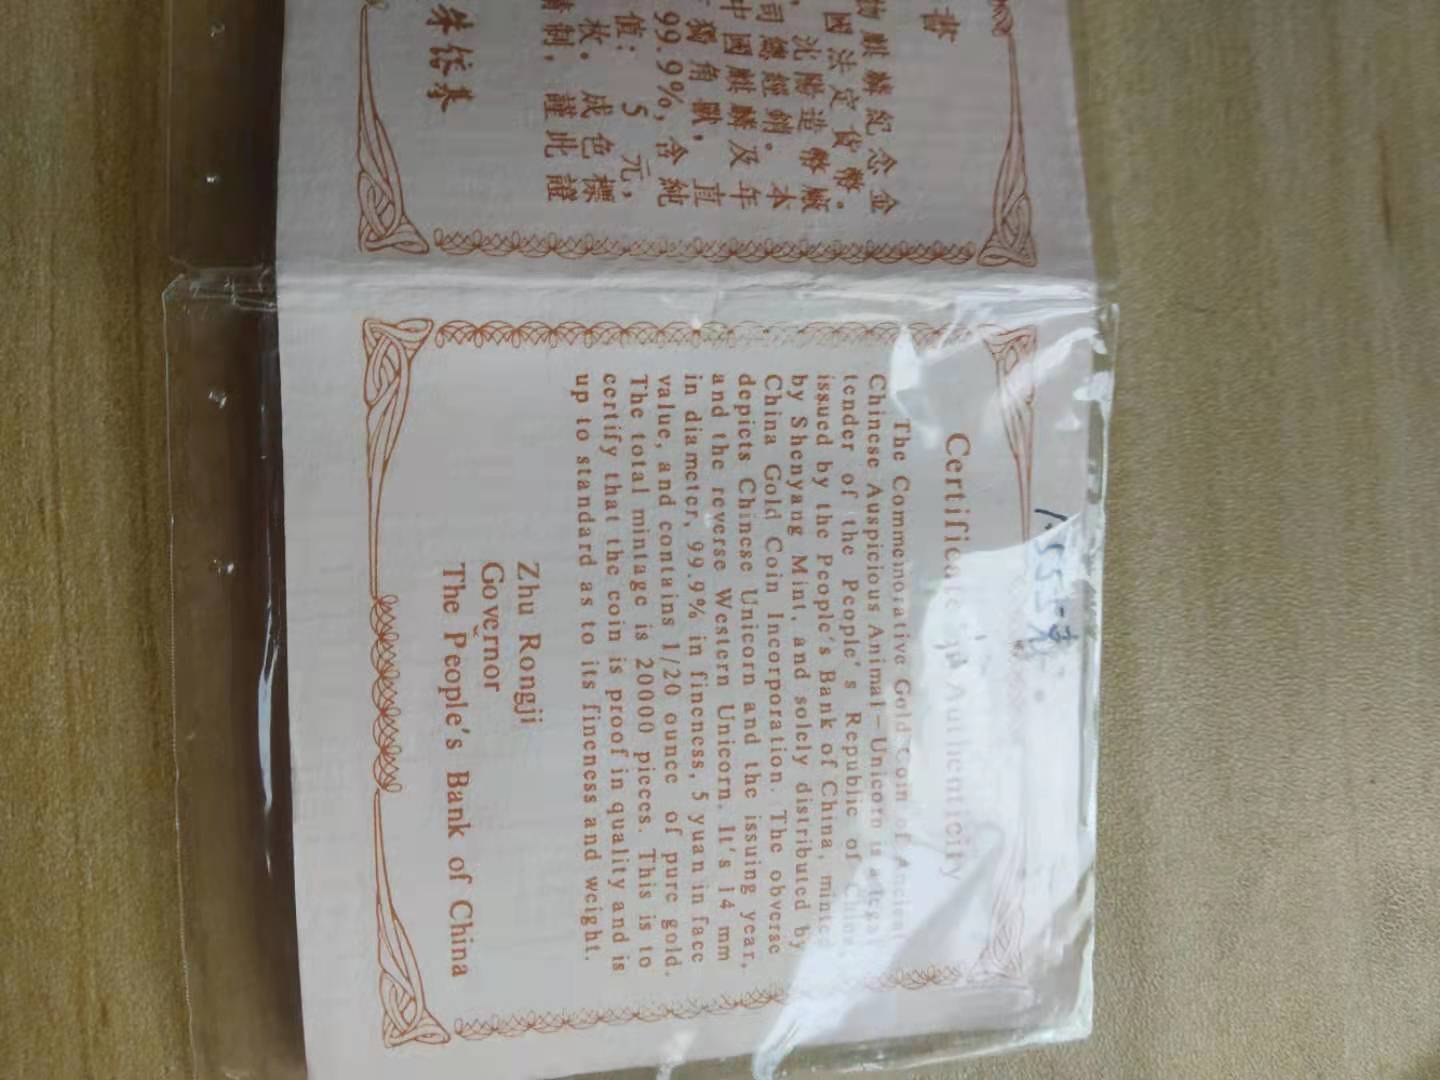 書
物麒麟紀念金
國法定貨幣。
沈陽造幣廠
司總經銷。本
中國麒麟及年
獨角獸，直
99.9%，含純
值：5元，
枚。成色標
制，謹此證
朱镕基
Certificate of Authenticity
The Commemorative Gold Coin of Ancient
Chinese Auspicious Animal-Unicorn is a legal
tender of the People's Republic of China,
issued by the People's Bank of China, minted
by Shenyang Mint, and solely distributed by
China Gold Coin Incorporation. The obverse
depicts Chinese Unicorn and the issuing year,
and the reverse Western Unicorn. It's 14 mm
in diameter, 99.9% in fineness, 5 yuan in face
value, and contains 1/20 ounce of pure gold.
The total mintage is 20000 pieces. This is to
certify that the coin is proof in quality and is
up to standard as to its fineness and weight.
Zhu Rongji
Governor
The People's Bank of China